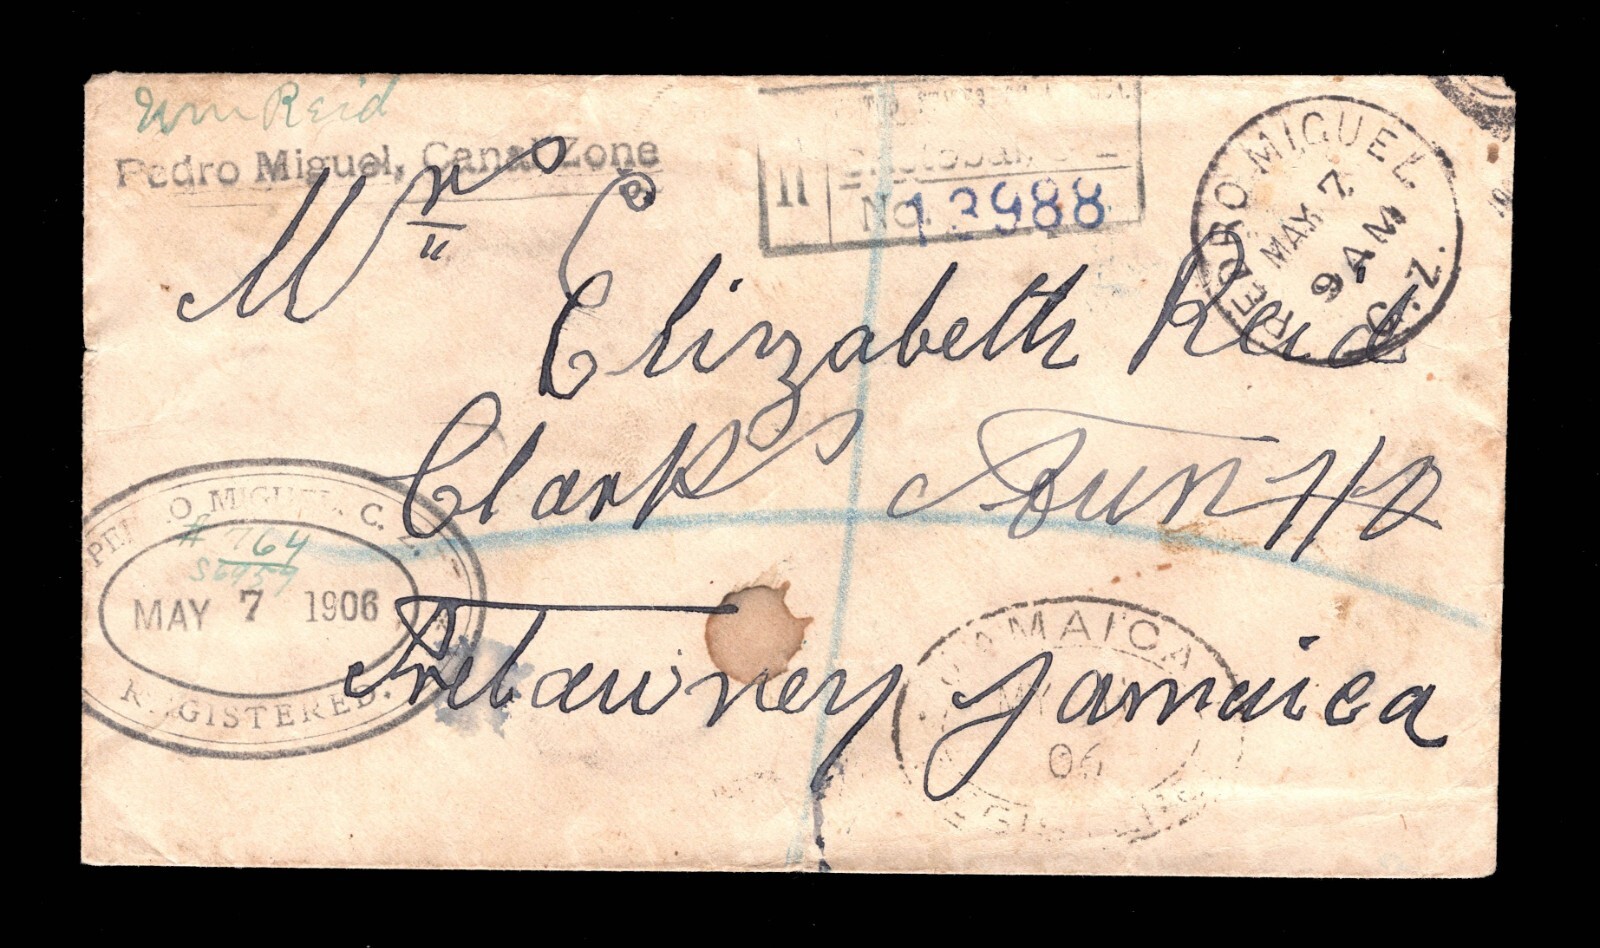 Wm Reid
Pedro Miguel, Canal Zone
R
Cristobal, C Z
No. 13988
PEDRO MIGUEL
MAY 7
9 AM
C.Z.
Mrs
Elizabeth Reid
Clarks
Trelawney Jamaica
PEDRO MIGUEL C. Z.
# 764
MAY 7 1906
REGISTERED.
JAMAICA
06